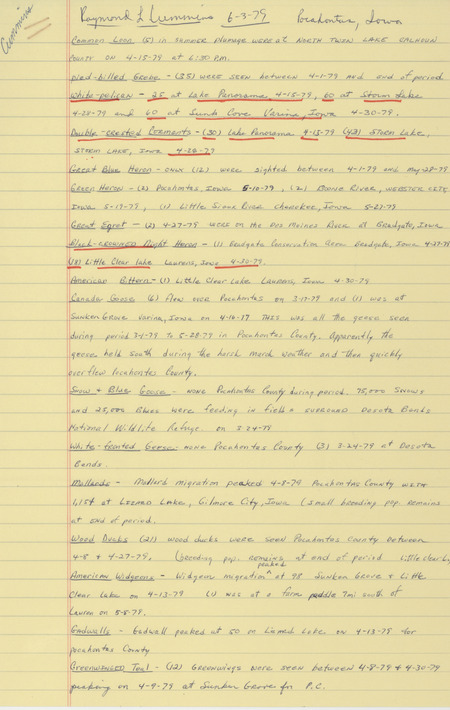 Cummins
Raymond L Cummins 6-3-79 Pocahontas, Iowa
Common Loon (5) in summer plumage were at North Twin Lake Calhoun
County on 4-15-79 at 6:30 P.M.
Pied-billed Grebe - (35) were seen between 4-1-79 and end of period
White-pelican - 25 at Lake Panorama, 4-15-79, 80 at Storm Lake
4-28-79 and 60 at Sunk Cove Varina, Iowa 4-30-79.
Double-crested Cormorants - (30) Lake Panorama 4-15-79 (42) Storm Lake,
Storm Lake, Iowa 4-28-79
Great Blue Heron - only (12) were sighted between 4-1-79 and May-28-79
Green Heron - (2) Pocahontas Iowa 5-10-79, (2) Boone River, Webster City
Iowa 5-19-79, (1) Little Sioux River Cherokee, Iowa 5-27-79
Great Egret - (2) 4-27-79 were on the Des Moines River at Bradgate, Iowa
Black-crowned Night Heron - (1) Bradgate Conservation Area Bradgate, Iowa 4-27-79
Little Clear Lake Laurens, Iowa 4-30-79.
American Bittern - (1) Little Clear Lake Laurens, Iowa 4-30-79
Canada Goose (6) flew over Pocahontas on 3-17-79 and (1) was at
Sunken Grove Varina, Iowa on 4-10-79 This was all the geese seen
during period 3-1-79 to 5-28-79 in Pocahontas County. Apparently the
geese held south during the harsh march weather and then quickly
overflew Pocahontas County.
Snow & Blue Goose - none Pocahontas County during period. 75,000 Snows
and 25,000 Blues were feeding in fields surround Desoto Bends
National Wildlife Refuge. on 3-24-79
White-fronted Goose - none Pocahontas County (3) 3-24-79 at Desoto
Bends.
Mallards - Mallard migration peaked 4-8-79 Pocahontas County with
at Lizard Lake, Gilmore City, Iowa (small breeding pop. remains
at end of period.
Wood Ducks (21) wood ducks were seen Pocahontas County between
4-8 & 4-27-79. (breeding pop. remains at end of period Little Clear
American Widgeons - Widgeon migration peaked at 98 Sunken Grove & Little
Clear Lake on 4-13-79 (1) was at a farm puddle 7mi south of
Laurens on 5-5-79.
Gadwalls - Gadwell peaked at 50 on Lizard Lake on 4-13-79 for
pocahontas County
Greenwinged Teal - (12) Greenwings were seen between 4-8-79 & 4-30-79
peaking on 4-9-79 at Sunken Grove for P.C.